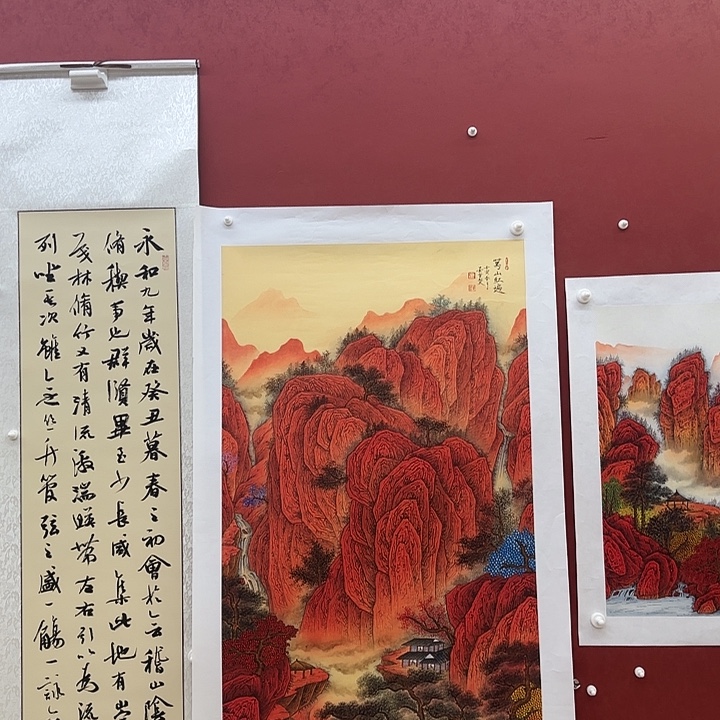 永和九年歲在癸丑暮春之初會於會稽山陰
脩禊事也群賢畢至少長咸集此地有崇
茂林脩竹又有清流激湍暎帶左右引以為流
列坐其次雖無絲竹管弦之盛一觴一詠
萬山紅遍